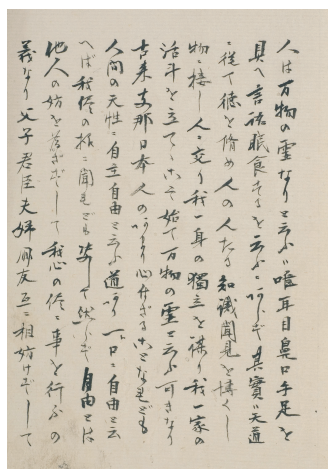 人は万物の霊なりと云ふハ唯耳目鼻口手足を
具へ言語眠食するを云ふニあらず其實ハ天道
ニ従て徳を脩め人の人たる知識聞見を博くし
物ニ接し人ニ交り我一身の獨立を謀り我一家の
活計を立てゝこそ始て万物の霊と云ふ可きなり
古来支那日本人のあまり心付ざることなれども
人間の天性ニ自主自由と云ふ道あり一ト口ニ自由と云
へば我侭の様ニ聞れども決して然らず自由とは
他人の妨を為さずして我心の侭ニ事を行ふの
義なり父子君臣夫婦朋友互ニ相妨げずして